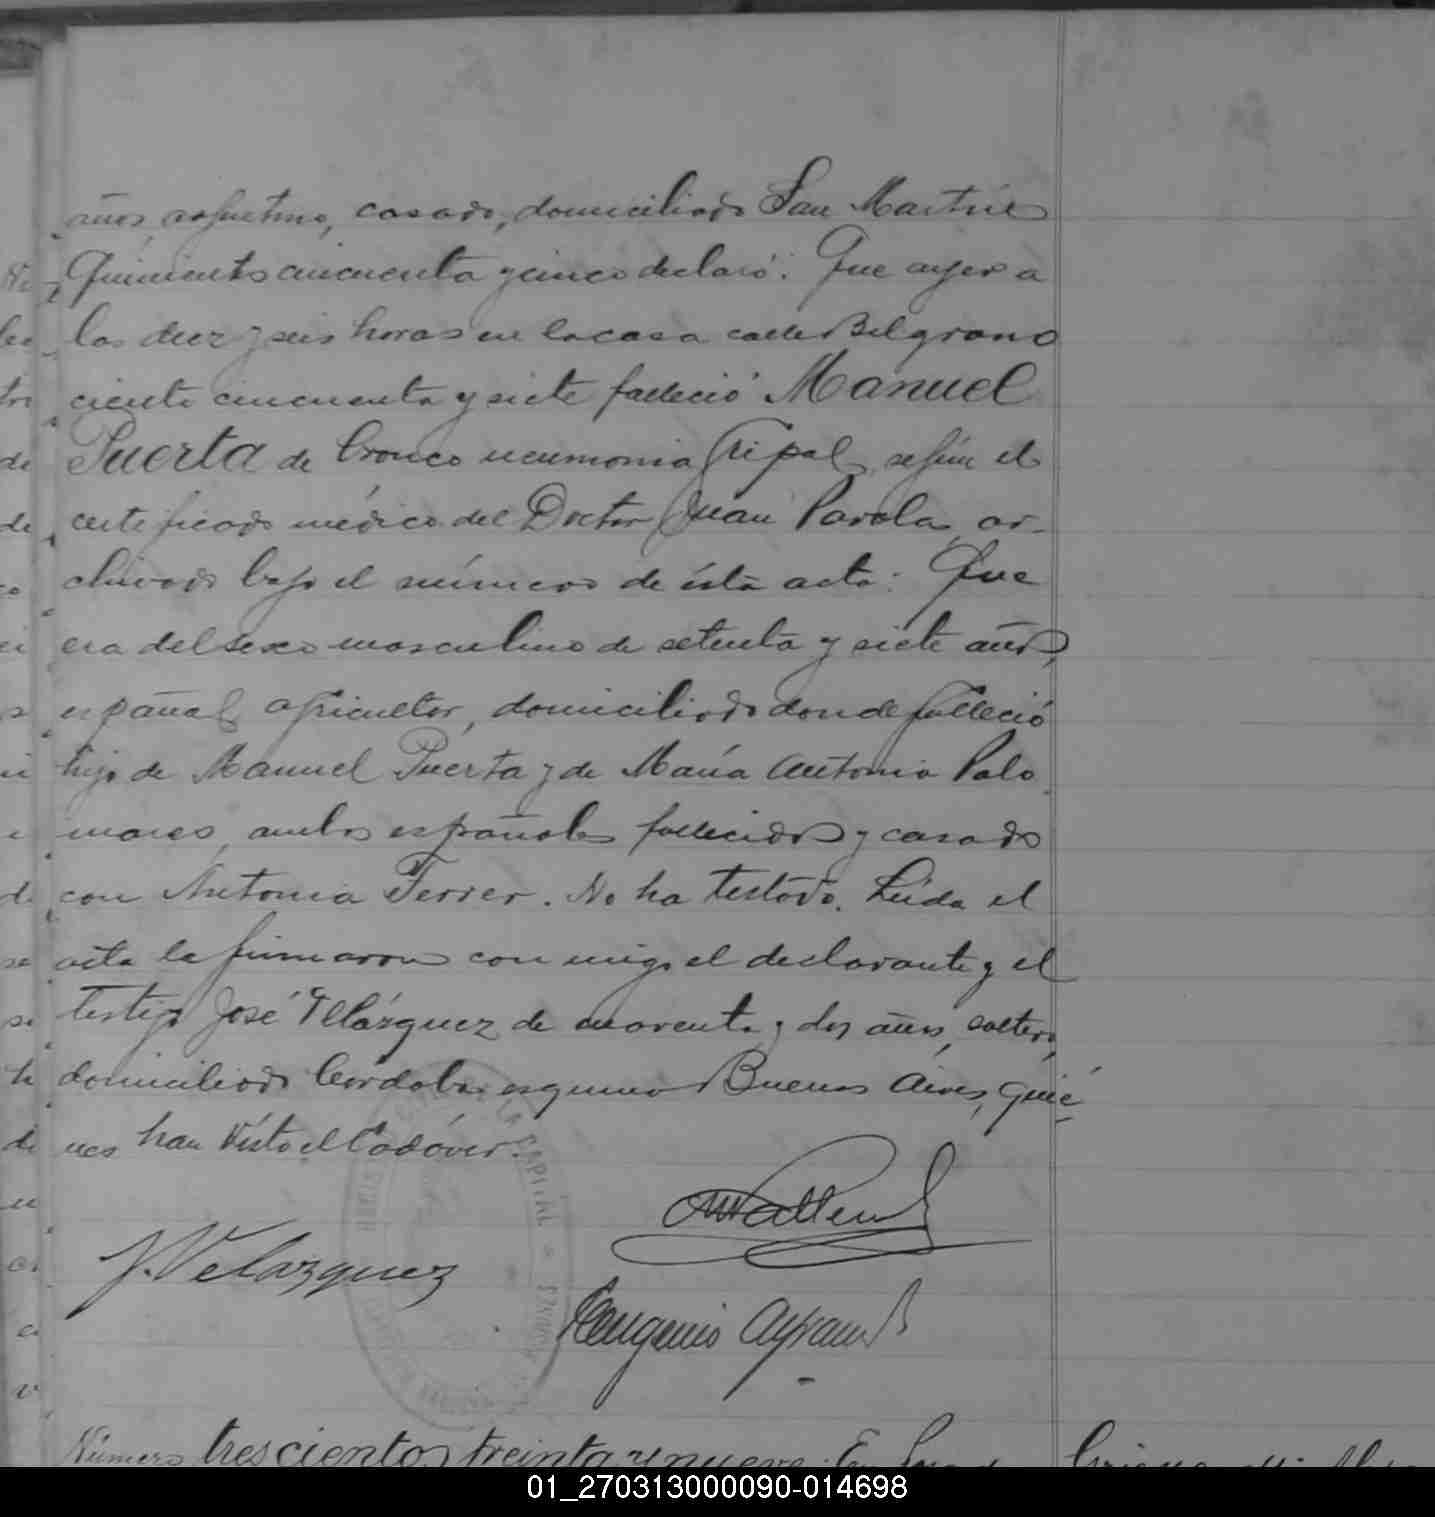 años, argentino, casado, domiciliado San Martín
Quinientos cincuenta y cinco declaró: Que ayer a
las diez y seis horas en la casa calle Belgrano
ciento cincuenta y siete falleció Manuel
Puerta de bronco neumonia Gripal, según el
certificado médico del Doctor Juan Parola, ar-
chivado bajo el número de ésta acta: Que
era del sexo masculino de setenta y siete años,
español, agricultor, domiciliado donde falleció
hijo de Manuel Puerta y de María Antonia Palo
mares, ambos españoles fallecidos y casado
con Antonia Ferrer. No ha testado. Leida el
acta la firmaron con migo el declarante y el
testigo José Velázquez de cuarenta y dos años, soltero,
domiciliado Cordoba esquina Buenos Aires, quié-
nes han visto el Cadáver.
J. Velazquez
Eugenio
Número trescientos treinta y nueve: En
01_270313000090-014698